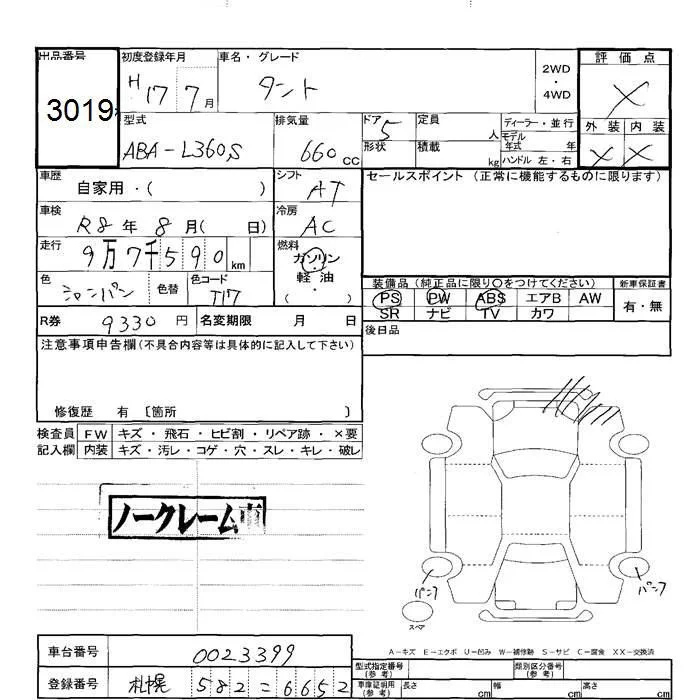 出品番号 初度登録年月 車名・グレード 評価点
3019 H17 7月 タント 2WD ・ 4WD X
外装 内装
型式 排気量 ドア 定員 ディーラー・並行
ABA-L360S 660cc 5 人 モデル年式 年 X X
形状 積載 kg ハンドル 左・右
車歴 シフト セールスポイント(正常に機能するものに限ります)
自家用・( ) AT
車検 冷房
R8年 8月( 日) AC
走行 燃料
9万7千590km ガソリン・軽油・( )
色 色替 色コード 装備品(純正品に限り○をつけてください) 新車保証書
シャンパン T17 PS PW ABS エアB AW 有・無
SR ナビ TV カワ
R券 9330円 名変期限 月 日 後日品
注意事項申告欄(不具合内容等は具体的に記入して下さい)
修復歴 有 〔箇所 〕
検査員 FW キズ・飛石・ヒビ割・リペア跡・×要
記入欄 内装 キズ・汚レ・コゲ・穴・スレ・キレ・破レ
ノークレーム車
パンク パンク
スペア
A-キズ E-エクボ U-凹み W-補修跡 S-サビ C-腐食 XX-交換済
車台番号 0023399 型式指定番号(参考) 類別区分番号(参考)
登録番号 札幌 582 = 6652 車庫証明用(参考) 長さ cm 幅 cm 高さ cm